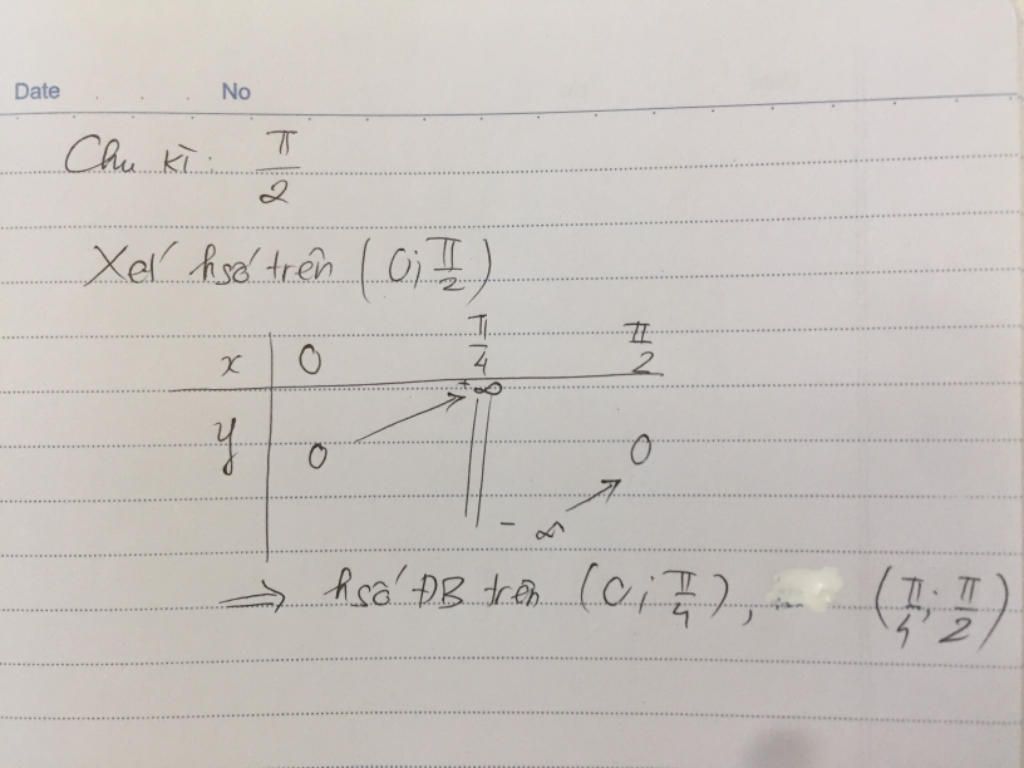 Date No
Chu kì: π/2
Xét hsố trên (0; π/2)
x 0 π/4 π/2
y 0 +∞ -∞ 0
⇒ hsố ĐB trên (0; π/4), (π/4; π/2)